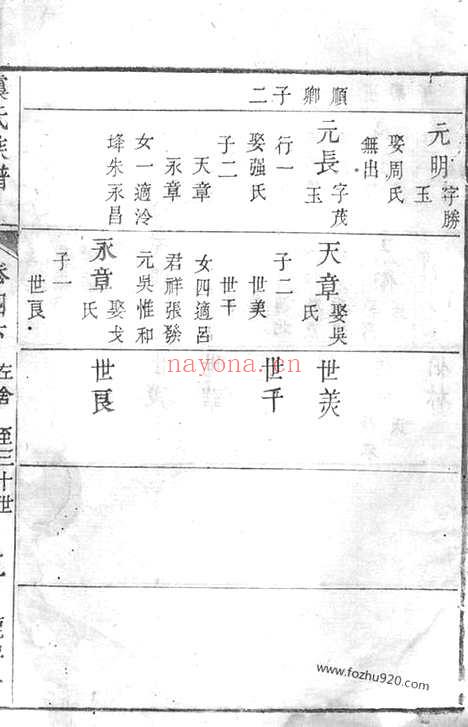 順卿子二
元明字勝
玉
娶周氏
無出
元長字茂
玉
行一
娶强氏
子二
天章
永章
女一適泠
埄朱永昌
天章娶吳
氏
子二
世美
世干
女四適呂
君祥張發
元吳惟和
永章娶戈
氏
子一
世良
世美
世干
世良
氏族譜
卷四下
左舍
至三十世
nayona.cn
www.fozhu920.com